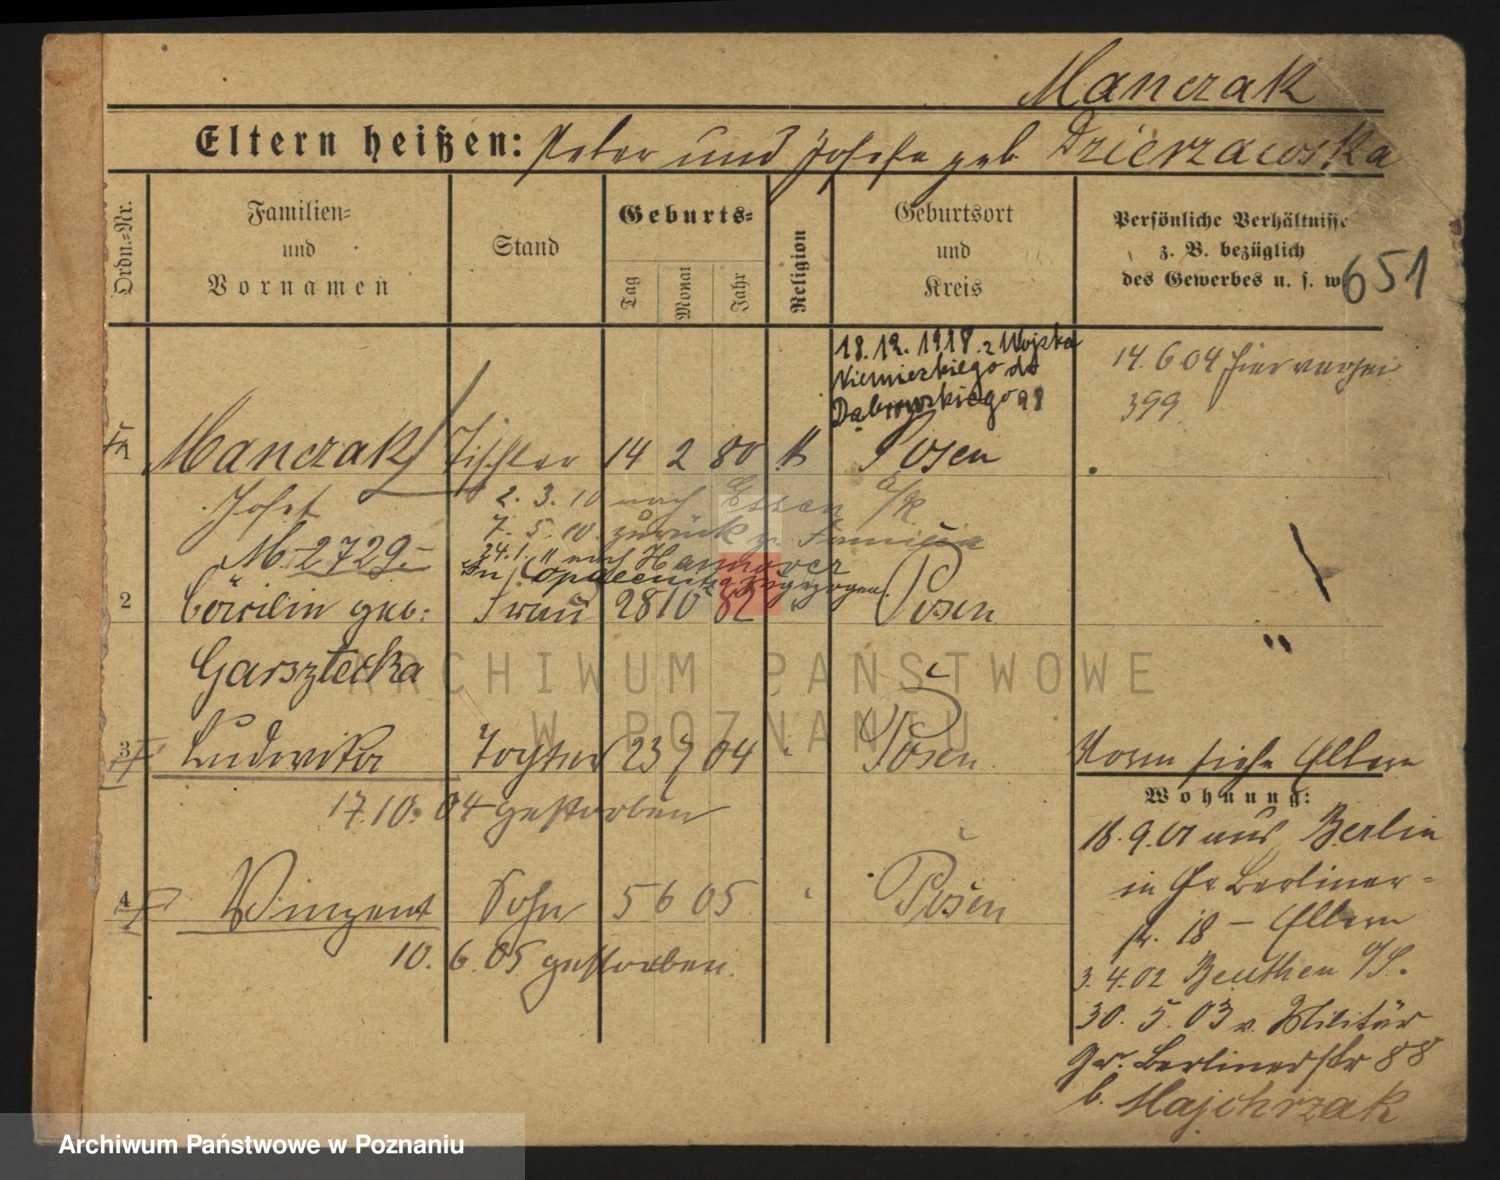 Manczak
Eltern heißen: Peter und Josefa geb. Dzierzawska
Ordn.-Nr.
Familien-
und
Vornamen
Stand
Geburts-
Tag
Monat
Jahr
Religion
Geburtsort
und
Kreis
Persönliche Verhältnisse
z. B. bezüglich
des Gewerbes u. s. w.
651
18.12.1918. z Wojska
Niemieckiego do
Dąbrowskiego 98
14.6.04 hier
399
Manczak Tischler 14 2 80 k Posen
Josef
2. 3. 10 nach Essen a/R
7. 5. 10. zurück z. Familie
M. 2729.
24.1.11 nach Hannover
zugezogen.
2 Cäcilie geb: Frau 28 10 82 " Posen
Garsztecka
"
ARCHIWUM PAŃSTWOWE
W POZNANIU
3 Ludwika Tochter 23 7 04 " Posen
17.10.04 gestorben
Vorm siehe Eltern
Wohnung:
18.9.01 aus Berlin
in Gr Berliner-
str. 18 – Eltern
3.4.02 Beuthen O/S.
30. 5. 03 v. Militär
Gr. Berlinerstr 88
b. Majchrzak
4 Vinzent Sohn 5 6 05 " Posen
10. 6. 05 gestorben.
Archiwum Państwowe w Poznaniu